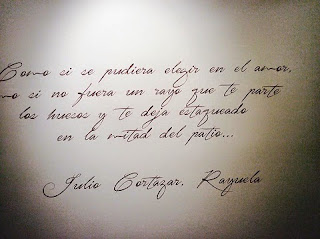 Como si se pudiera elegir en el amor,
mo si no fuera un rayo que te parte
los huesos y te deja estaqueado
en la mitad del patio...
Julio Cortázar, Rayuela